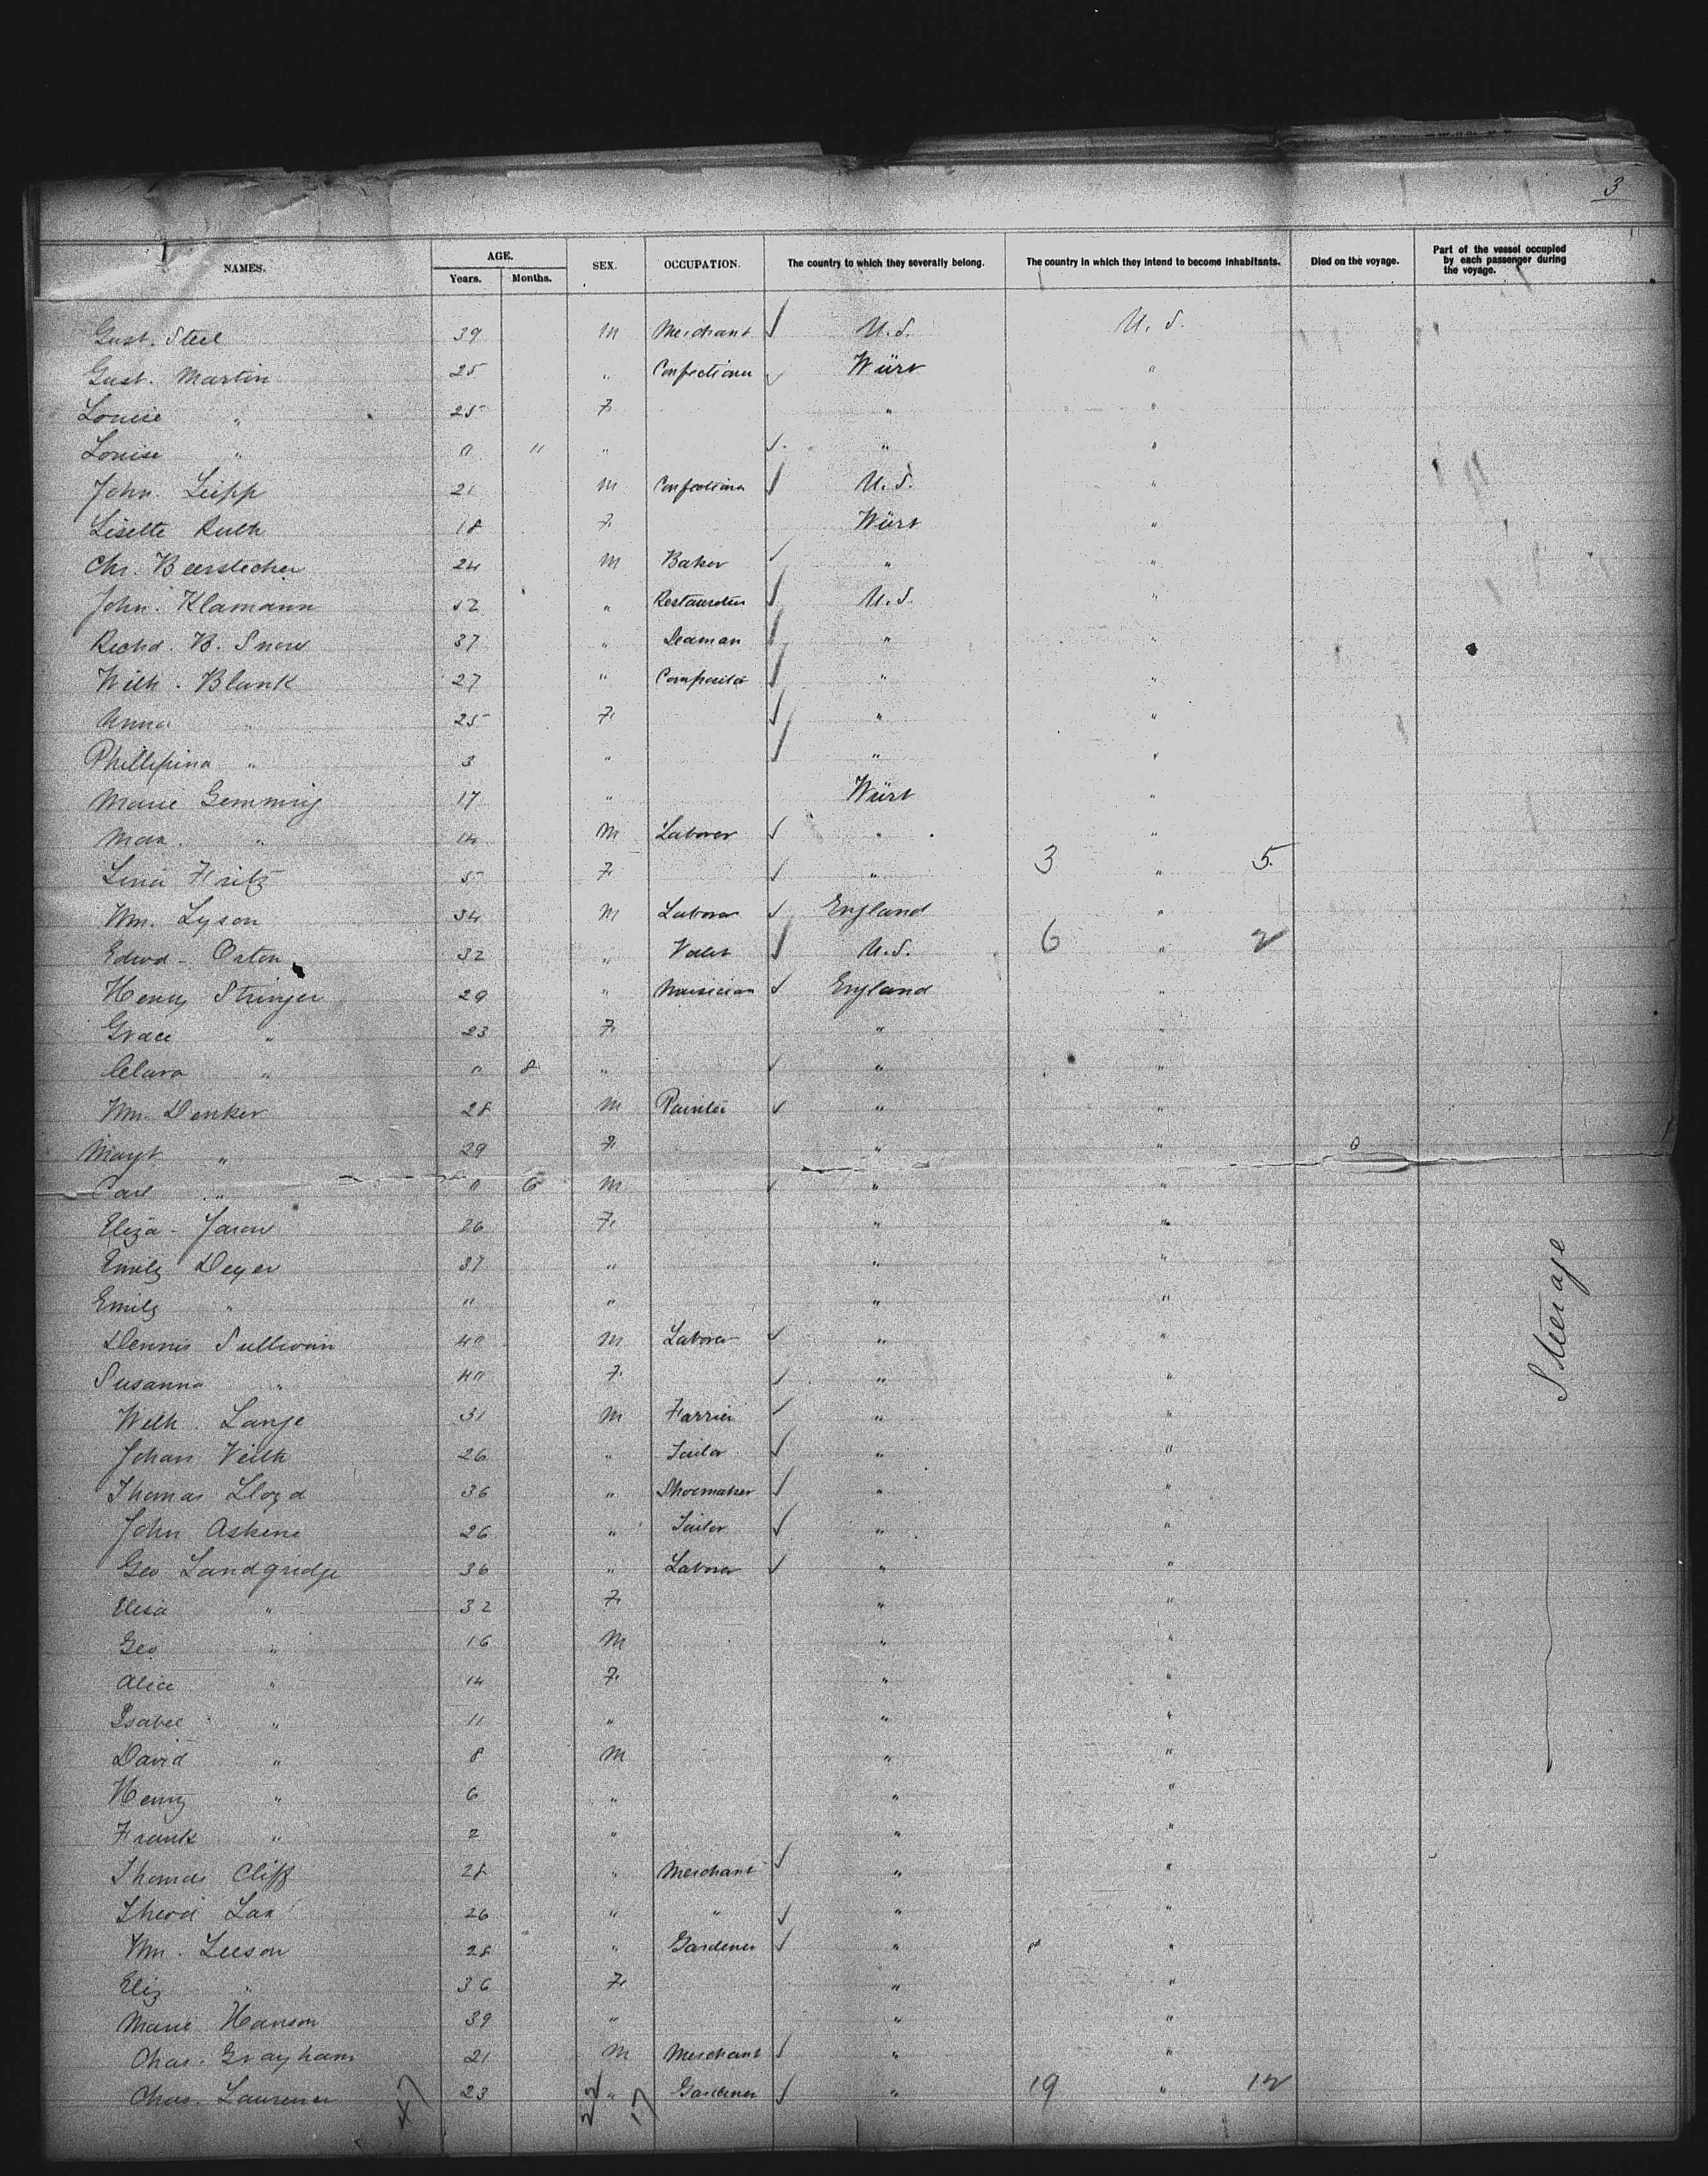 3
NAMES. AGE. Years. Months. SEX. OCCUPATION. The country to which they severally belong. The country in which they intend to become inhabitants. Died on the voyage. Part of the vessel occupied by each passenger during the voyage.
Gust. Steel 39 M Merchant U.S. U.S.
Gust. Martin 25 " Confectioner Würt "
Louise " 25 F " "
Louise " 0 11 " " "
John Leipp 21 M Confectioner U.S. "
Lisette Ruth 18 F Würt "
Chr. Beerstecher 24 M Baker " "
John. Klamann 52 " U.S. "
Richd. B. Snow 37 " Seaman " "
Wilh. Blank 27 " Compositor " "
Anna " 25 F " "
Phillipina " 3 " " "
Marie Gemmrig 17 " Würt "
Max. " 14 M Laborer " "
Lina Fritz 5 F " 3 " 5
Wm. Lyson 34 M Laborer England "
Edwd - Orton 32 " Valet U.S. 6 " 2
Henry Stringer 29 " Musician England "
Grace " 23 F " "
Clara " 0 8 " " "
Wm. Denker 28 M Painter " "
Margt " 29 F " "
Carl " 0 6 M " "
Eliza - 26 F " "
Emily Deyer 37 " " "
Emily " 11 " " "
Dennis Sullivan 40 M Laborer " "
Susanna " 40 F " "
Wilh. Lange 31 M Farrier " "
Johan Veith 26 " Tailor " "
Thomas Lloyd 36 " Shoemaker " "
John Askene 26 " Tailor " "
Geo Landgridge 36 " Laborer " "
Elisa " 32 F " "
Geo " 16 M " "
Alice " 14 F " "
Isabel " 11 " " "
David " 8 M " "
Henry " 6 " " "
Frank " 2 " " "
Thomas Cliff 28 " Merchant " "
Lax 26 " " " "
Wm. Leeson 28 " Gardener " "
Eliz " 36 F " "
Marie Hanson 39 " " "
Chas. Grayham 21 M Merchant " "
Chas. Laurence 23 " Gardener " 19 " 12
47 22 17
Steerage